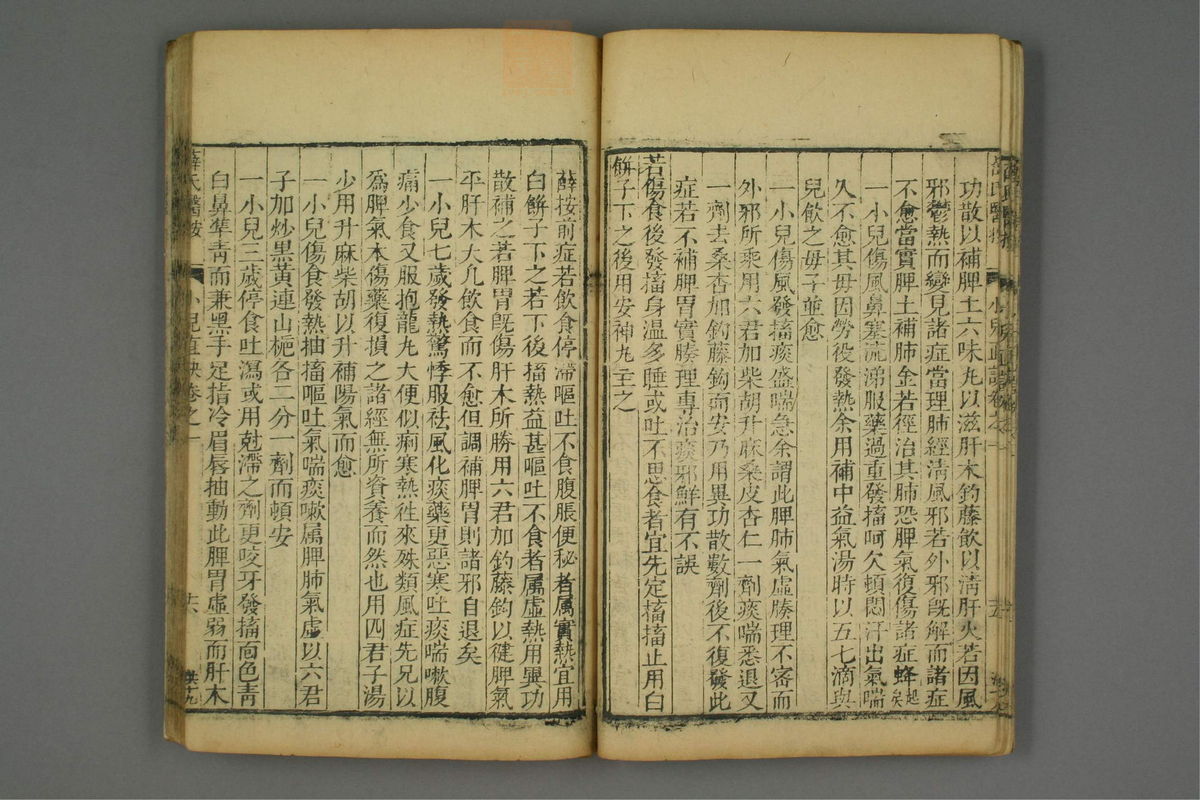 功散以補脾土六味丸以滋肝木鈎藤飲以清肝火若因風
邪鬱熱而變見諸症當理肺經清風邪若外邪旣解而諸症
不愈當實脾土補肺金若徑治其肺恐脾氣復傷諸症蜂起矣
一小兒傷風鼻塞流涕服藥過重發搐呵欠頓悶汗出氣喘
久不愈其母因勞役發熱余用補中益氣湯時以五七滴與
兒飲之母子並愈
一小兒傷風發搐痰盛喘急余謂此脾肺氣虛腠理不密而
外邪所乘用六君加柴胡升麻桑皮杏仁一劑痰喘悉退又
一劑去桑杏加鈎藤鈎而安乃用異功散數劑後不復發此
症若不補脾胃實腠理專治痰邪鮮有不誤
若傷食後發搐身温多睡或吐不思食者宜先定搐搐止用白
餅子下之後用安神丸主之
薛按前症若飲食停滯嘔吐不食腹脹便秘者属實熱宜用
白餅子下之若下後搐熱益甚嘔吐不食者属虛熱用異功
散補之若脾胃旣傷肝木所勝用六君加鈎藤鈎以健脾氣
平肝木大凡飲食而不愈但調補脾胃則諸邪自退矣
一小兒七歲發熱驚悸服祛風化痰藥更惡寒吐痰喘嗽腹
痛少食又服抱龍丸大便似痢寒熱徃來殊類風症先兄以
爲脾氣本傷藥復損之諸經無所資養而然也用四君子湯
少用升麻柴胡以升補陽氣而愈
一小兒傷食發熱抽搐嘔吐氣喘痰嗽属脾肺氣虛以六君
子加炒黑黄連山梔各二分一劑而頓安
一小兒三歲停食吐瀉或用尅滯之劑更咬牙發搐面色靑
白鼻準靑而兼黑手足指冷眉唇抽動此脾胃虛弱而肝木
薛氏醫按
小兒直訣卷之一
十六